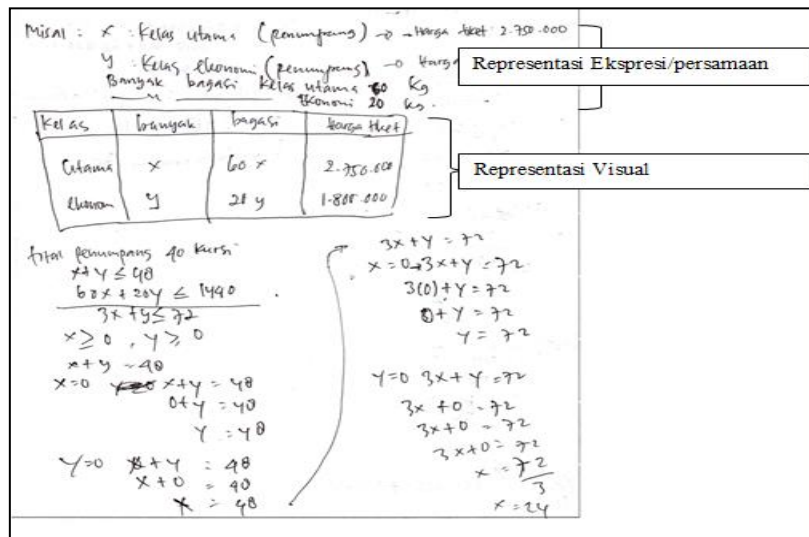 Misal : x : Kelas utama (penumpang) → Harga tiket 2.750.000
y : Kelas ekonomi (penumpang) → Harga
Banyak bagasi Kelas utama 60 Kg
ekonomi 20 kg.
Representasi Ekspresi/persamaan
Kelas banyak bagasi Harga tiket
Utama x 60 x 2.750.000
ekonom y 20 y 1.800.000
Representasi Visual
total penumpang 40 kursi
x+y ≤ 48
60x + 20y ≤ 1440
3x + y ≤ 72
x ≥ 0 , y ≥ 0
x+y = 48
x=0 x+y = 48
0+y = 48
y = 48
y=0 x+y = 48
x+0 = 48
x = 48
3x + y = 72
x = 0 → 3x+y = 72
3(0)+y = 72
0+y = 72
y = 72
y=0 3x+y = 72
3x+0 = 72
3x+0 = 72
3x+0 = 72
x = 72
3
x = 24